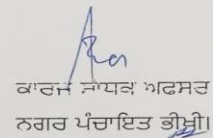 ਕਾਰਜ ਸਾਧਕ ਅਫਸਰ
ਨਗਰ ਪੰਚਾਇਤ ਭੀਖੀ।